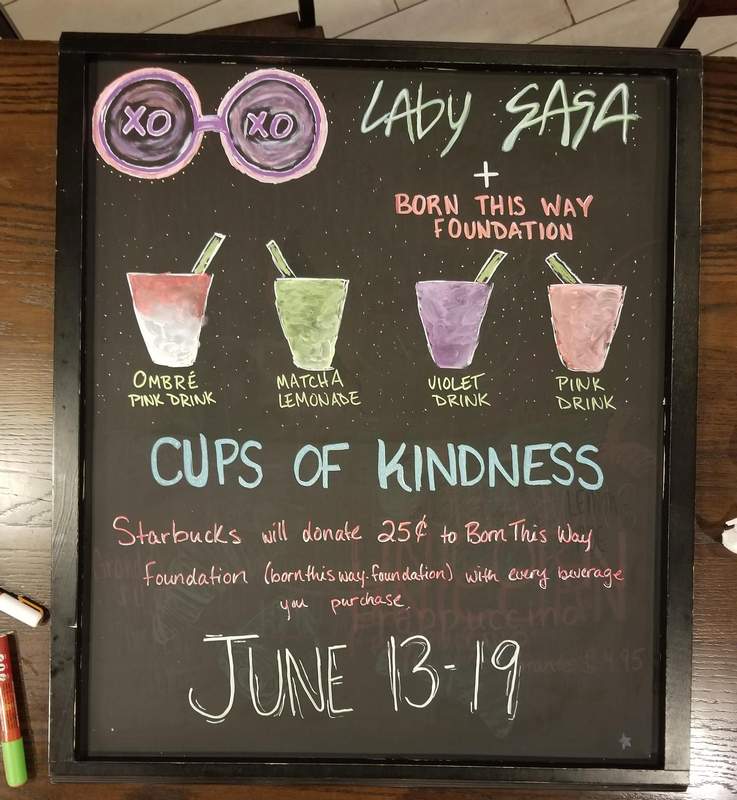 XO XO
LADY GAGA
+
BORN THIS WAY
FOUNDATION
OMBRÉ
PINK DRINK
MATCHA
LEMONADE
VIOLET
DRINK
PINK
DRINK
CUPS OF KINDNESS
Starbucks will donate 25¢ to Born This Way
Foundation (bornthisway.foundation) with every beverage
you purchase.
JUNE 13-19